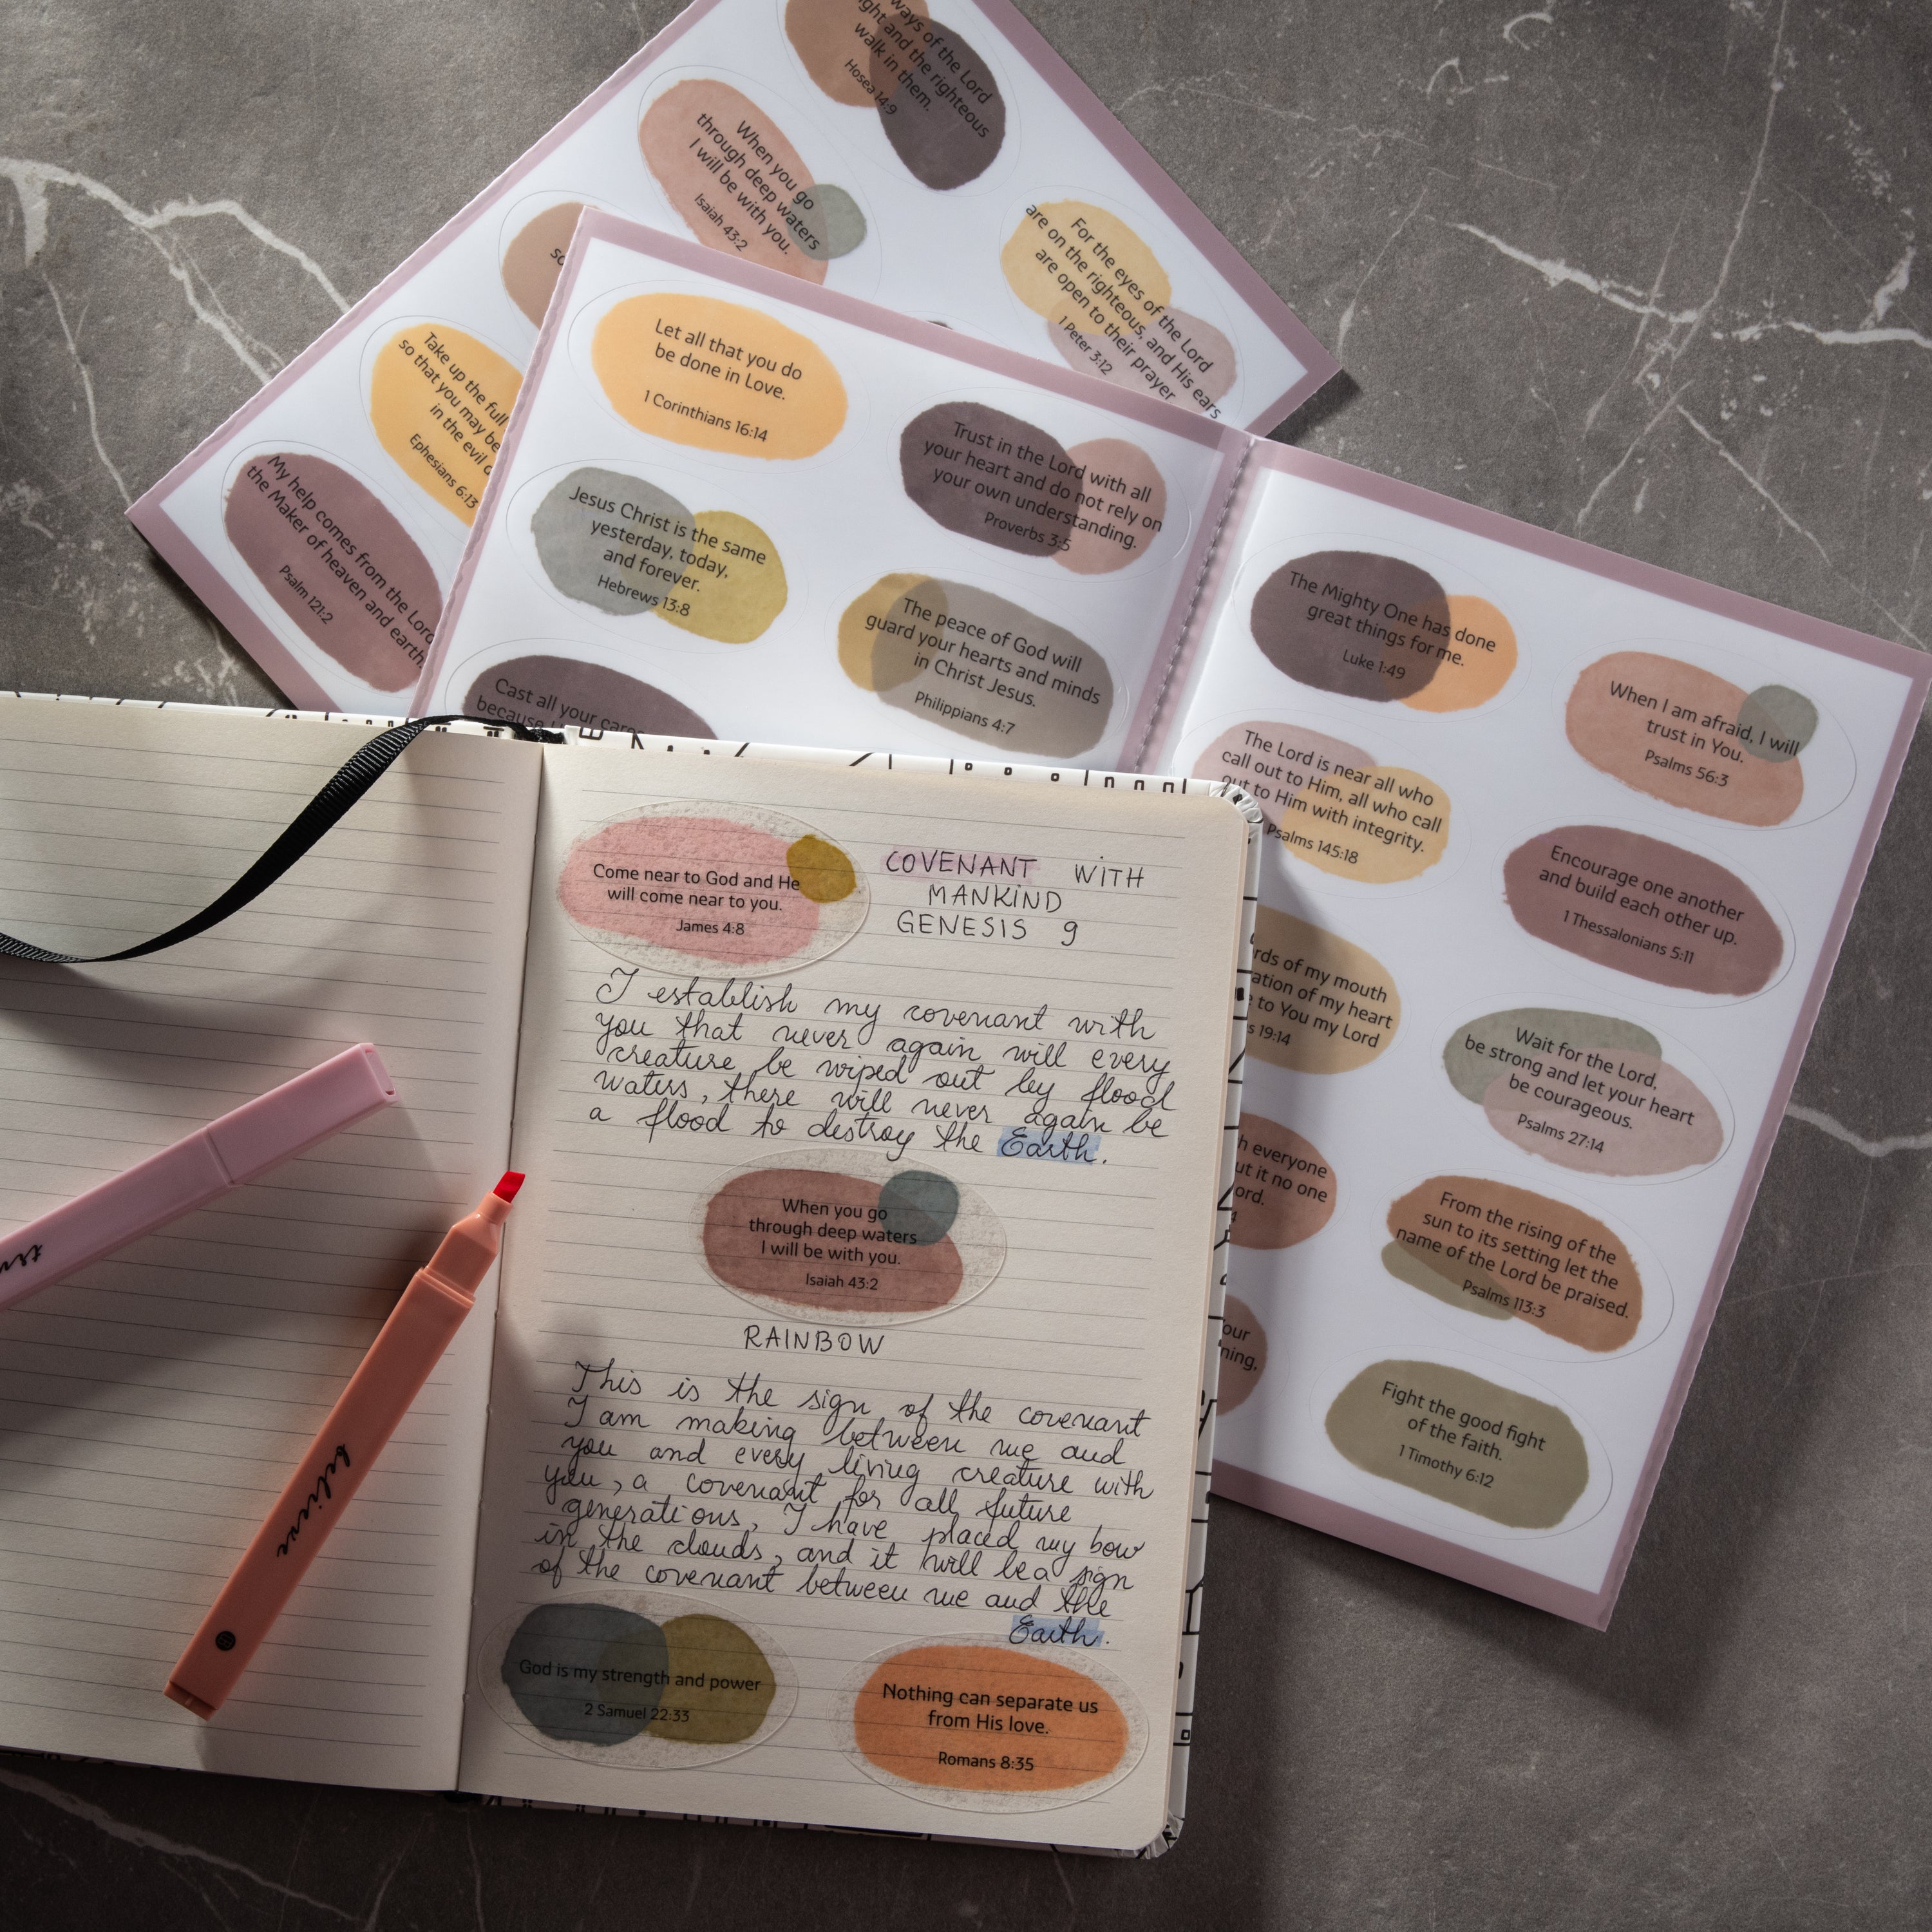 ways of the Lord
and the righteous
walk in them.
Hosea 14:9
When you go
through deep waters
I will be with you.
Isaiah 43:2
For the eyes of the Lord
are on the righteous, and His ears
are open to their prayer
1 Peter 3:12
Take up the full
so that you may be
in the evil
Ephesians 6:13
My help comes from the Lord
the Maker of heaven and earth.
Psalm 121:2
Let all that you do
be done in Love.
1 Corinthians 16:14
Trust in the Lord with all
your heart and do not rely on
your own understanding.
Proverbs 3:5
Jesus Christ is the same
yesterday, today,
and forever.
Hebrews 13:8
The peace of God will
guard your hearts and minds
in Christ Jesus.
Philippians 4:7
Cast all your cares
because
The Mighty One has done
great things for me.
Luke 1:49
When I am afraid, I will
trust in You.
Psalms 56:3
The Lord is near all who
call out to Him, all who call
out to Him with integrity.
Psalms 145:18
Encourage one another
and build each other up.
1 Thessalonians 5:11
of my mouth
of my heart
to You my Lord
19:14
Wait for the Lord,
be strong and let your heart
be courageous.
Psalms 27:14
everyone
it no one
From the rising of the
sun to its setting let the
name of the Lord be praised.
Psalms 113:3
Fight the good fight
of the faith.
1 Timothy 6:12
Come near to God and He
will come near to you.
James 4:8
COVENANT WITH
MANKIND
GENESIS 9
I establish my covenant with
you that never again will every
creature be wiped out by flood
waters, there will never again be
a flood to destroy the Earth.
When you go
through deep waters
I will be with you.
Isaiah 43:2
RAINBOW
This is the sign of the covenant
I am making between me and
you and every living creature with
you, a covenant for all future
generations, I have placed my bow
in the clouds, and it will be a sign
of the covenant between me and the
Earth.
God is my strength and power
2 Samuel 22:33
Nothing can separate us
from His love.
Romans 8:35
believe